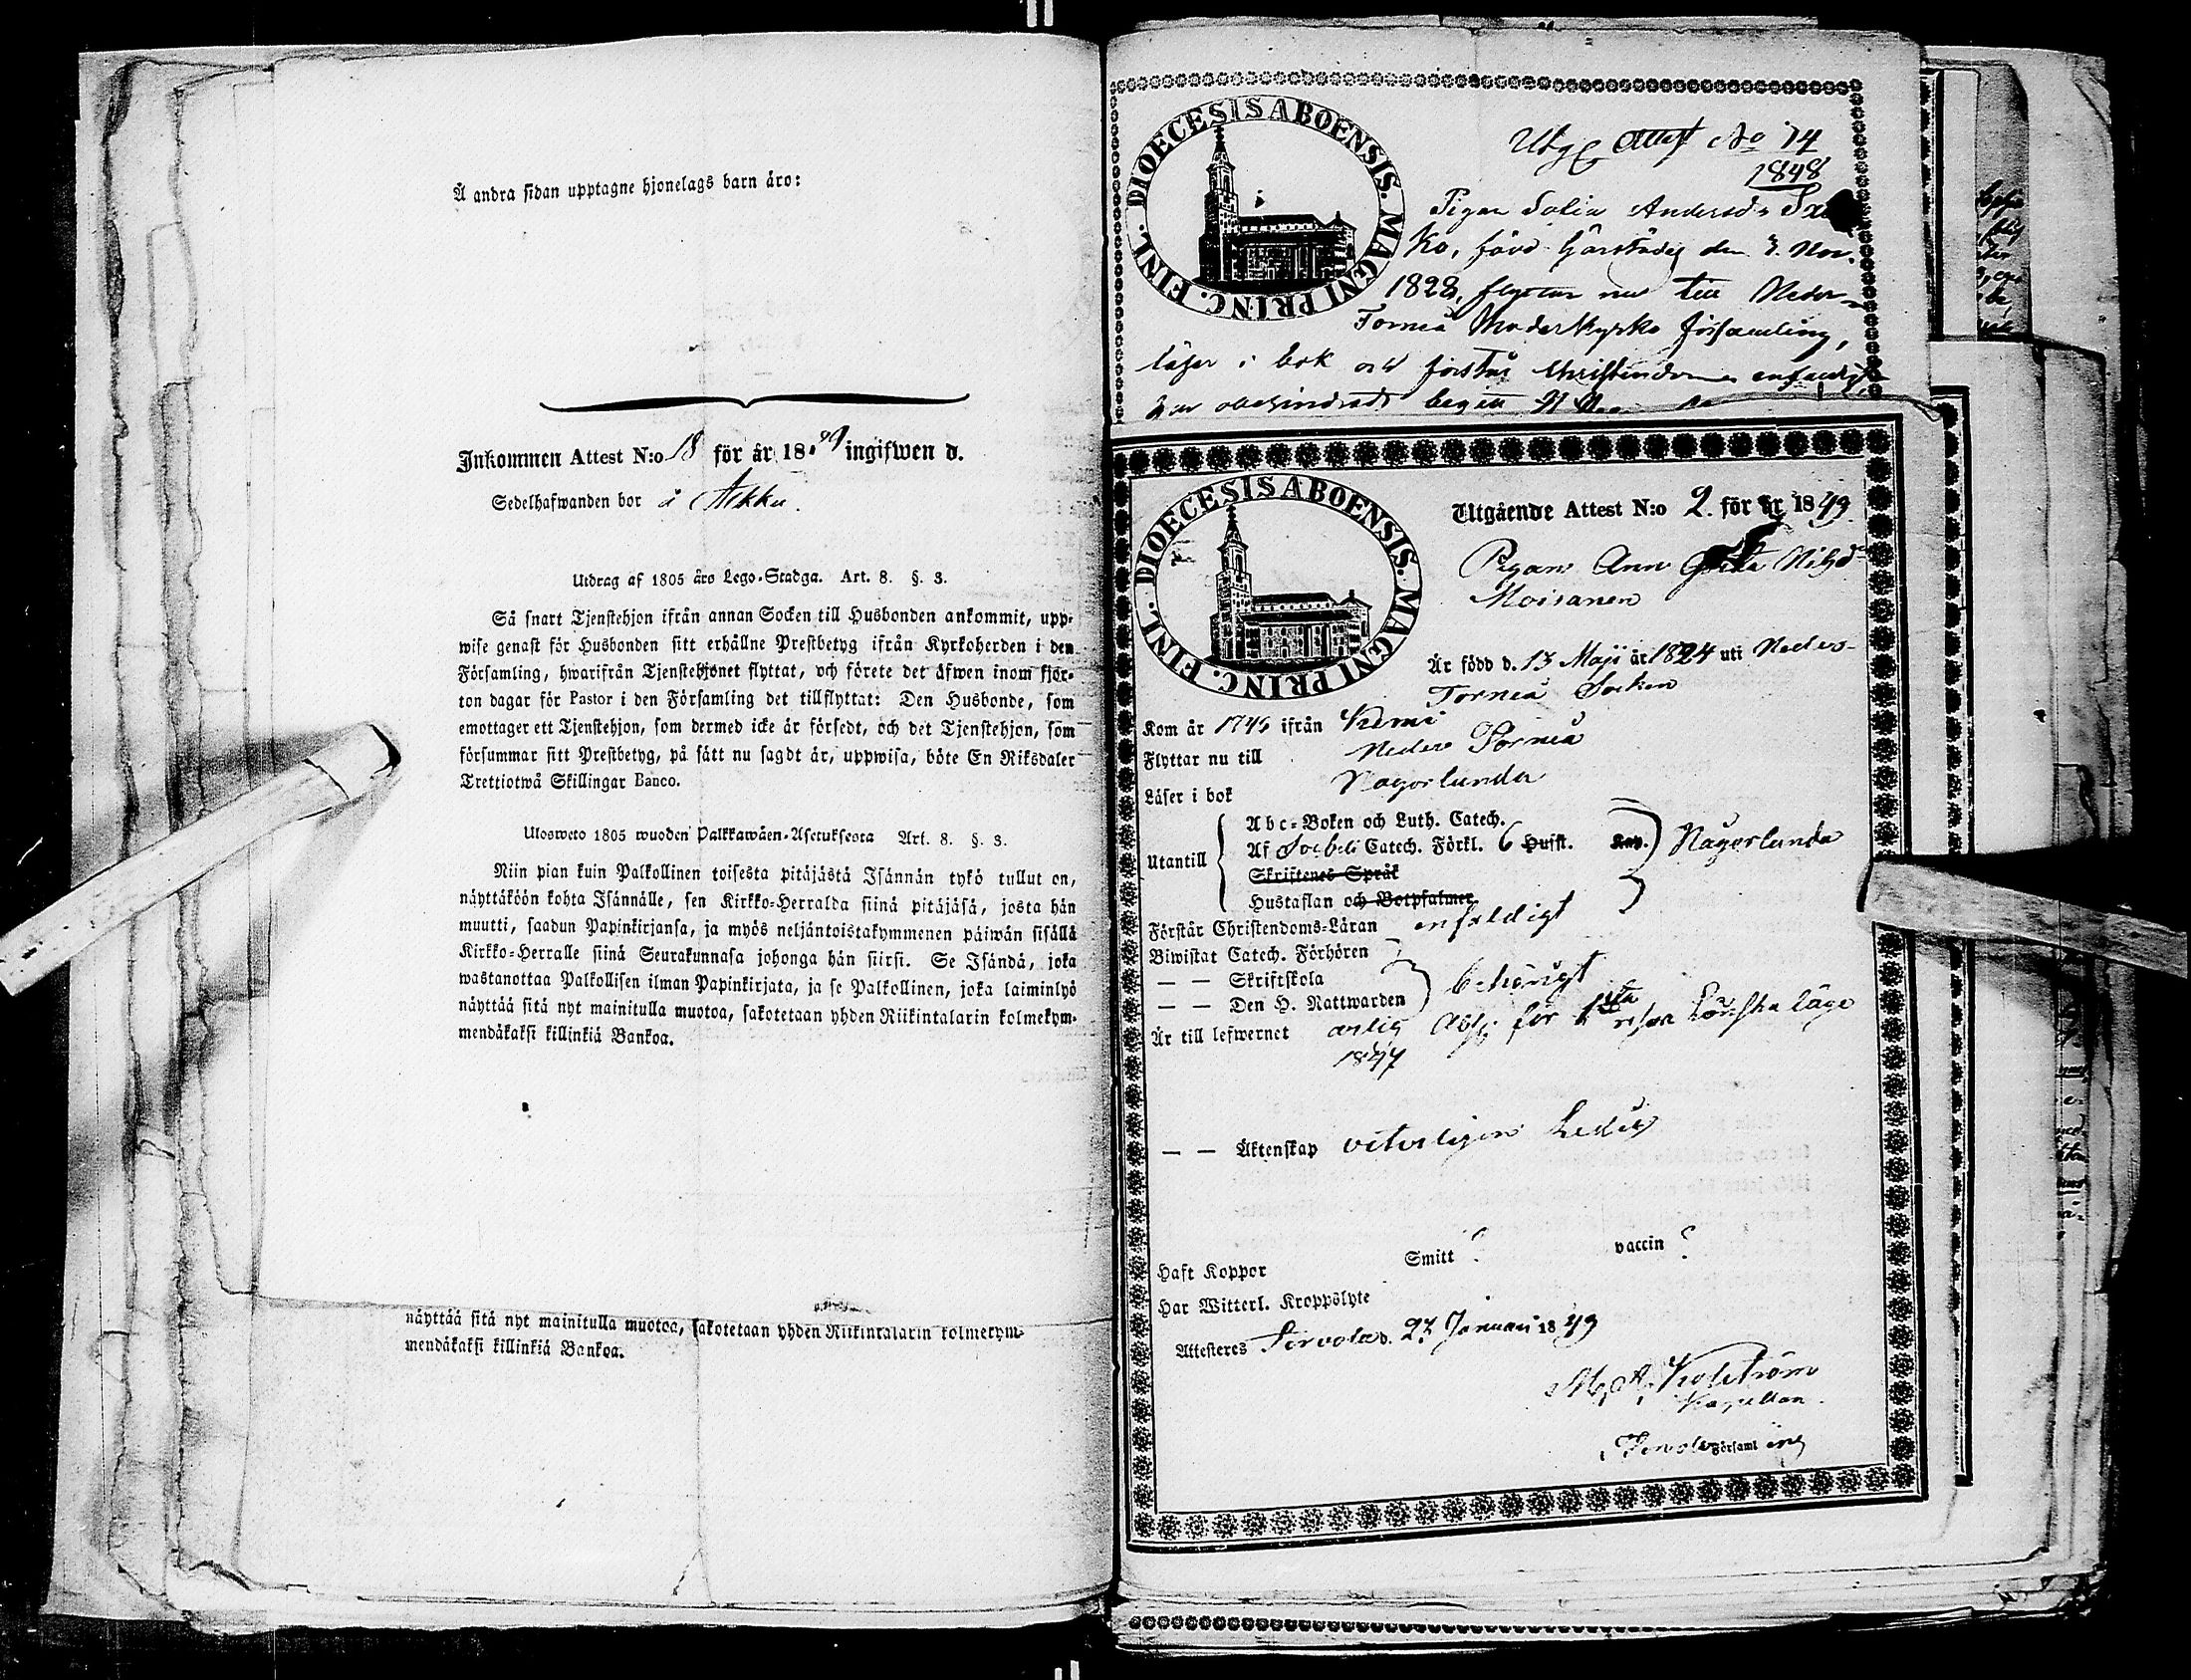 Å andra sidan upptagne hjonelags barn äro:
Inkommen Attest N:o 18 för år 1849 ingifwen d.
Sedelhafwanden bor å Akku.
Utdrag af 1805 års Lego-Stadga. Art. 8. §. 3.
Så snart Tjenstehjon ifrån annan Socken till Husbonden ankommit, upp-
wise genast för Husbonden sitt erhållne Prestbetyg ifrån Kyrkoherden i den
Församling, hwarifrån Tjenstehjonet flyttat, och förete det äfwen inom fjor-
ton dagar för Pastor i den Församling det tillflyttat: Den Husbonde, som
emottager ett Tjenstehjon, som dermed icke är försedt, och det Tjenstehjon, som
försummar sitt Prestbetyg, på sätt nu sagdt är, uppwisa, böte En Riksdaler
Trettiotwå Skillingar Banco.
Ulosweto 1805 wuoden Palkkawäen-Asetuksesta Art. 8. §. 3.
Niin pian kuin Palkollinen toisesta pitäjästä Isännän tykö tullut on,
näyttäköön kohta Isännälle, sen Kirkko-Herralda siinä pitäjäsä, josta hän
muutti, saadun Papinkirjansa, ja myös neljäntoistakymmenen päiwän sisällä
Kirkko-Herralle siinä Seurakunnasa johonga hän siirsi. Se Isändä, joka
wastanottaa Palkollisen ilman Papinkirjata, ja se Palkollinen, joka laiminlyö
näyttää sitä nyt mainitulla muotoa, sakotetaan yhden Riikintalarin kolmekym-
mendäkaksi killinkiä Bankoa.
näyttää sitä nyt mainitulla muotoa, sakotetaan yhden Riikintalarin kolmekym-
mendäkaksi killinkiä Bankoa.
DIOECESIS ABOENSIS. MAGNI PRINC. FINL.
Utg. Attest No 14
1848
Pigan Sofia Andersdr
ko, född härstädes den 3. Nov.
1828, flyttar nu till Neder-
Torneå Moderkyrko församling,
läser i bok och förstår Christendomen enfaldigt
har obehindradt begått H. N.
DIOECESIS ABOENSIS. MAGNI PRINC. FINL.
Utgående Attest N:o 2. för år 1849
Pigan Anna Greta Nilsd
Moisanen
Är född d. 13 Maji år 1824 uti Neder-
Torneå Socken
Kom år 1745 ifrån Kemi
Flyttar nu till Neder Torneå
Läser i bok Nagorlunda
Utantill
Abc-Boken och Luth. Catech.
Af Svebeli Catech. Förkl. 6 Hufst. Kap. Någorlunda
Skriftenes Språk
Hustaflan och Botpsalmer
Förstår Christendoms-Läran enfaldigt
Biwistat Catech. Förhören
— — Skriftskola
— — Den H. Nattwarden behörigt
Är till lefwernet ärlig Abs. för 1sta resan Lönskaläge
1847
— — Äktenskap veterligen Ledig
Haft Koppor Smitt ? vaccin ?
Har Witterl. Kroppslyte
Attesteres Tervola d. 23 Januari 1849
Holström
Kapellan.
Tervola Församling